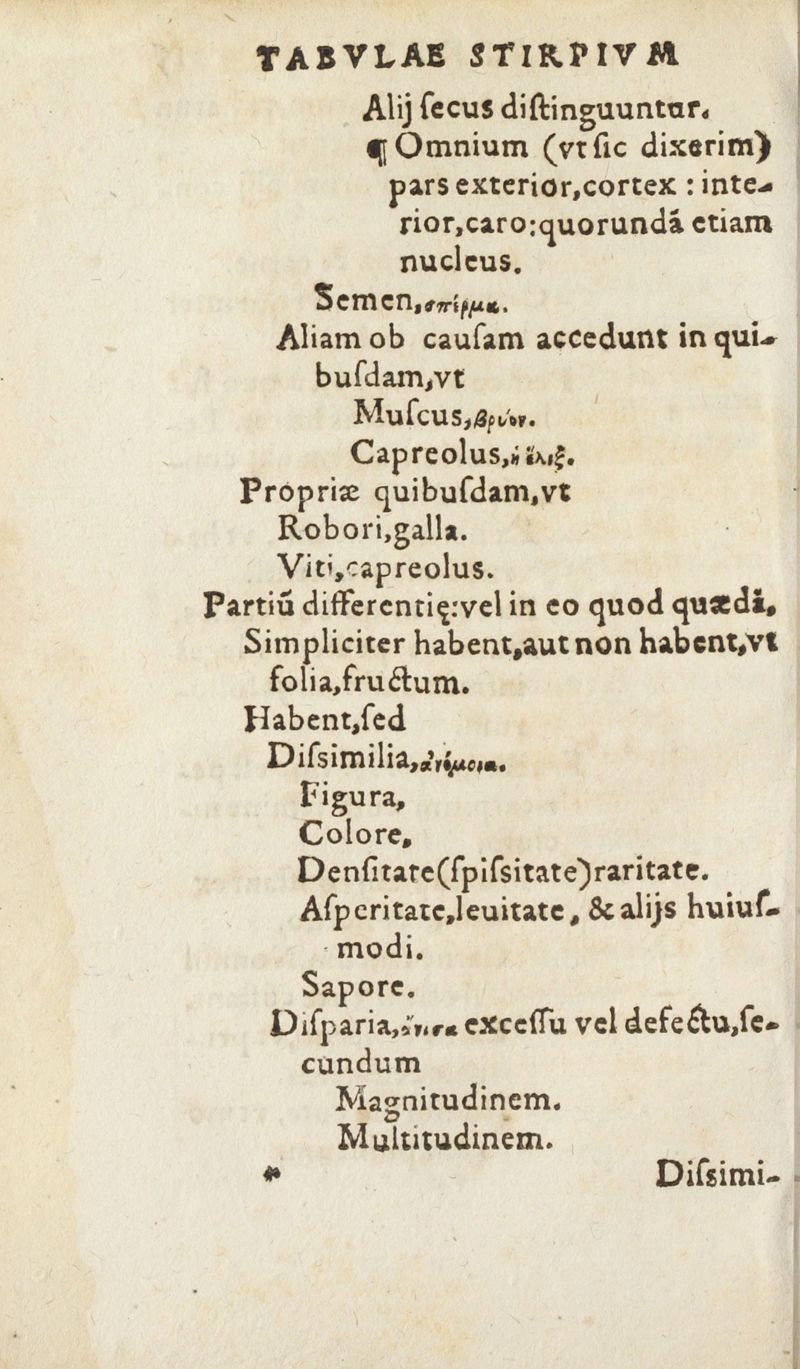 TABVLAE STIRPIVM
Alij ſecus diſtinguuntur.
¶ Omnium (vt ſic dixerim)
pars exterior,cortex : inte-
rior,caro:quorundā etiam
nucleus.
Semen,σπέρμα.
Aliam ob cauſam accedunt in qui-
buſdam,vt
Muſcus,βρύον.
Capreolus,ἡ ἕλιξ.
Propriæ quibuſdam,vt
Robori,galla.
Viti,capreolus.
Partiū differentię:vel in eo quod quædā,
Simpliciter habent,aut non habent,vt
folia,fructum.
Habent,ſed
Diſsimilia,ἀνόμοια.
Figura,
Colore,
Denſitate(ſpiſsitate)raritate.
Aſperitate,leuitate, & alijs huiuſ-
modi.
Sapore.
Diſparia,ἄνισα exceſſu vel defectu,ſe-
cundum
Magnitudinem.
Multitudinem.
Diſsimi-